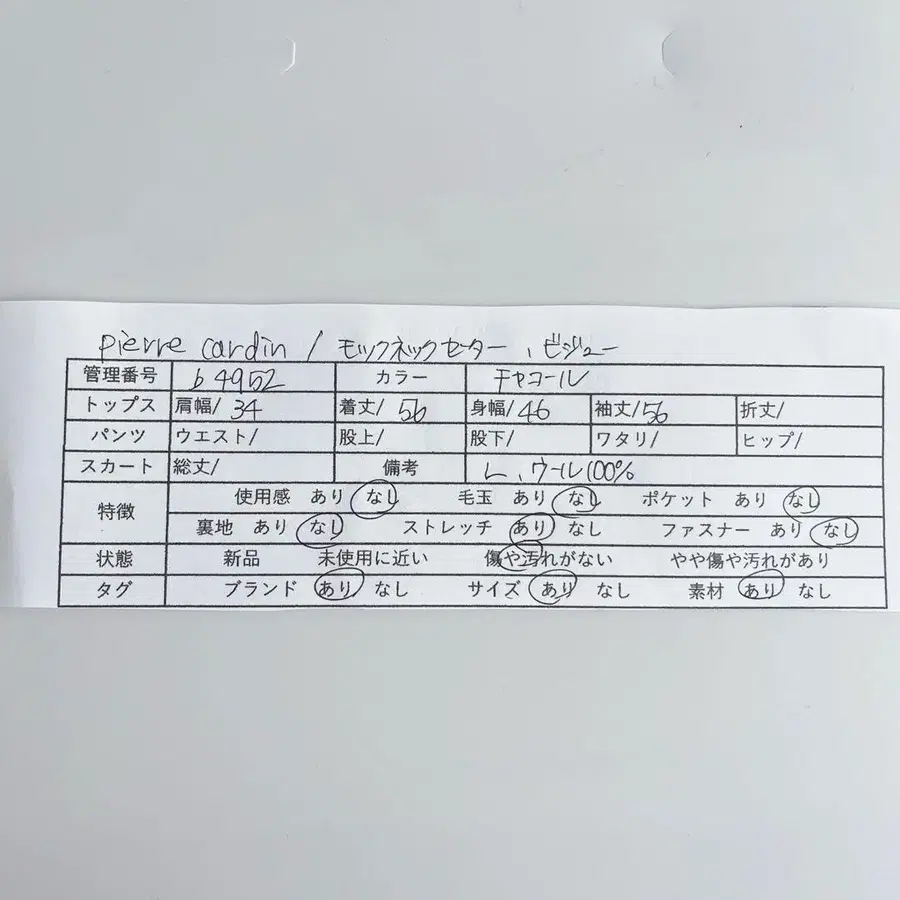 pierre cardin / モックネックセーター、ビジュー
管理番号 b4952 カラー チャコール
トップス 肩幅/ 34 着丈/ 56 身幅/ 46 袖丈/ 56 折丈/
パンツ ウエスト/ 股上/ 股下/ ワタリ/ ヒップ/
スカート 総丈/ 備考 L、ウール100%
特徴 使用感 あり なし 毛玉 あり なし ポケット あり なし
裏地 あり なし ストレッチ あり なし ファスナー あり なし
状態 新品 未使用に近い 傷や汚れがない やや傷や汚れがあり
タグ ブランド あり なし サイズ あり なし 素材 あり なし